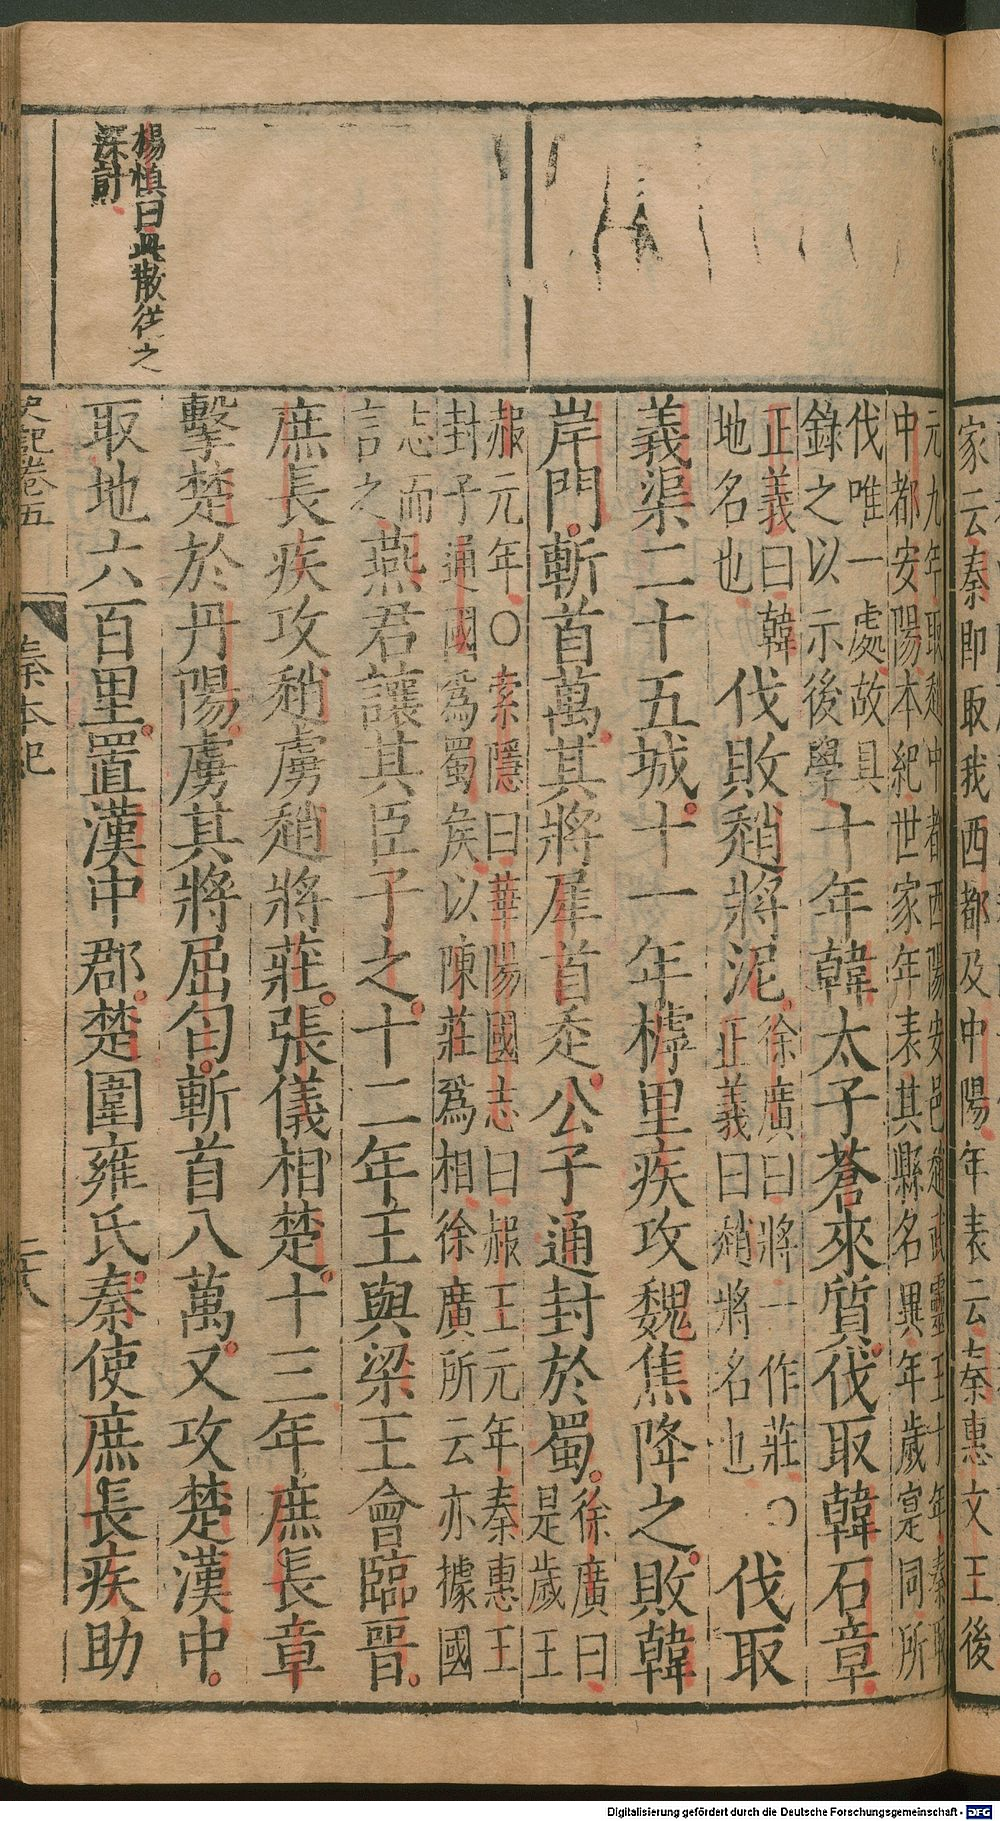 家云秦即取我西都及中陽年表云秦惠文王後
元九年取趙中都西陽安邑趙武靈王十年秦取
中都安陽本紀世家年表其縣名異年歲寔同所
伐唯一處故具
錄之以示後學
十年韓太子蒼來質伐取韓石章
正義曰韓
地名也
伐敗趙將泥
徐廣曰將一作莊○
正義曰趙將名也
伐取
義渠二十五城十一年樗里疾攻魏焦降之敗韓
岸門斬首萬其將犀首走公子通封於蜀
徐廣曰
是歲王
赧元年○索隱曰華陽國志曰赧王元年秦惠王
封子通國爲蜀矦以陳莊爲相徐廣所云亦據國
志而
言之
燕君讓其臣子之十二年王與梁王會臨晉
庶長疾攻趙虜趙將莊張儀相楚十三年庶長章
擊楚於丹陽虜其將屈匄斬首八萬又攻楚漢中
取地六百里置漢中郡楚圍雍氏秦使庶長疾助
楊慎曰此散從之
深計
史記卷五
秦本紀
Digitalisierung gefördert durch die Deutsche Forschungsgemeinschaft - DFG